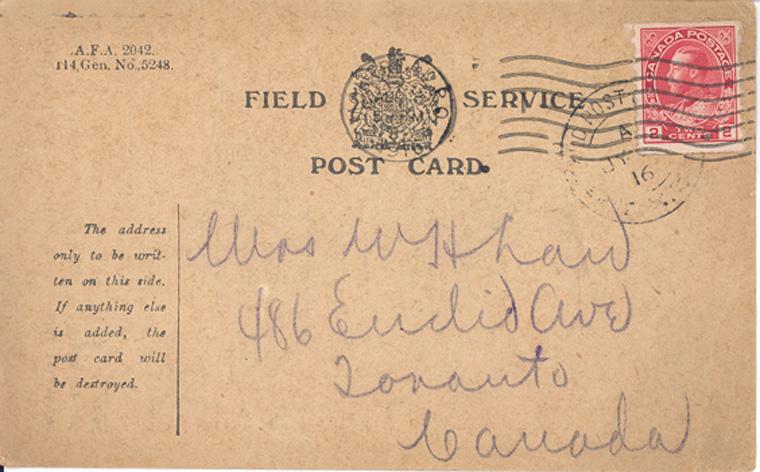 A.F.A. 2042.
114. Gen. No. 5248.
FIELD SERVICE
POST CARD.
CANADA POSTAGE
2 TWO 2
CENTS
POST
A
16
The address
only to be writ-
ten on this side.
If anything else
is added, the
post card will
be destroyed.
Mrs W H Law
486 Euclid Ave
Toronto
Canada